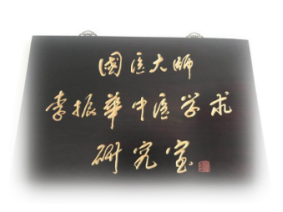 國医大师
李振华中医学术
研究室